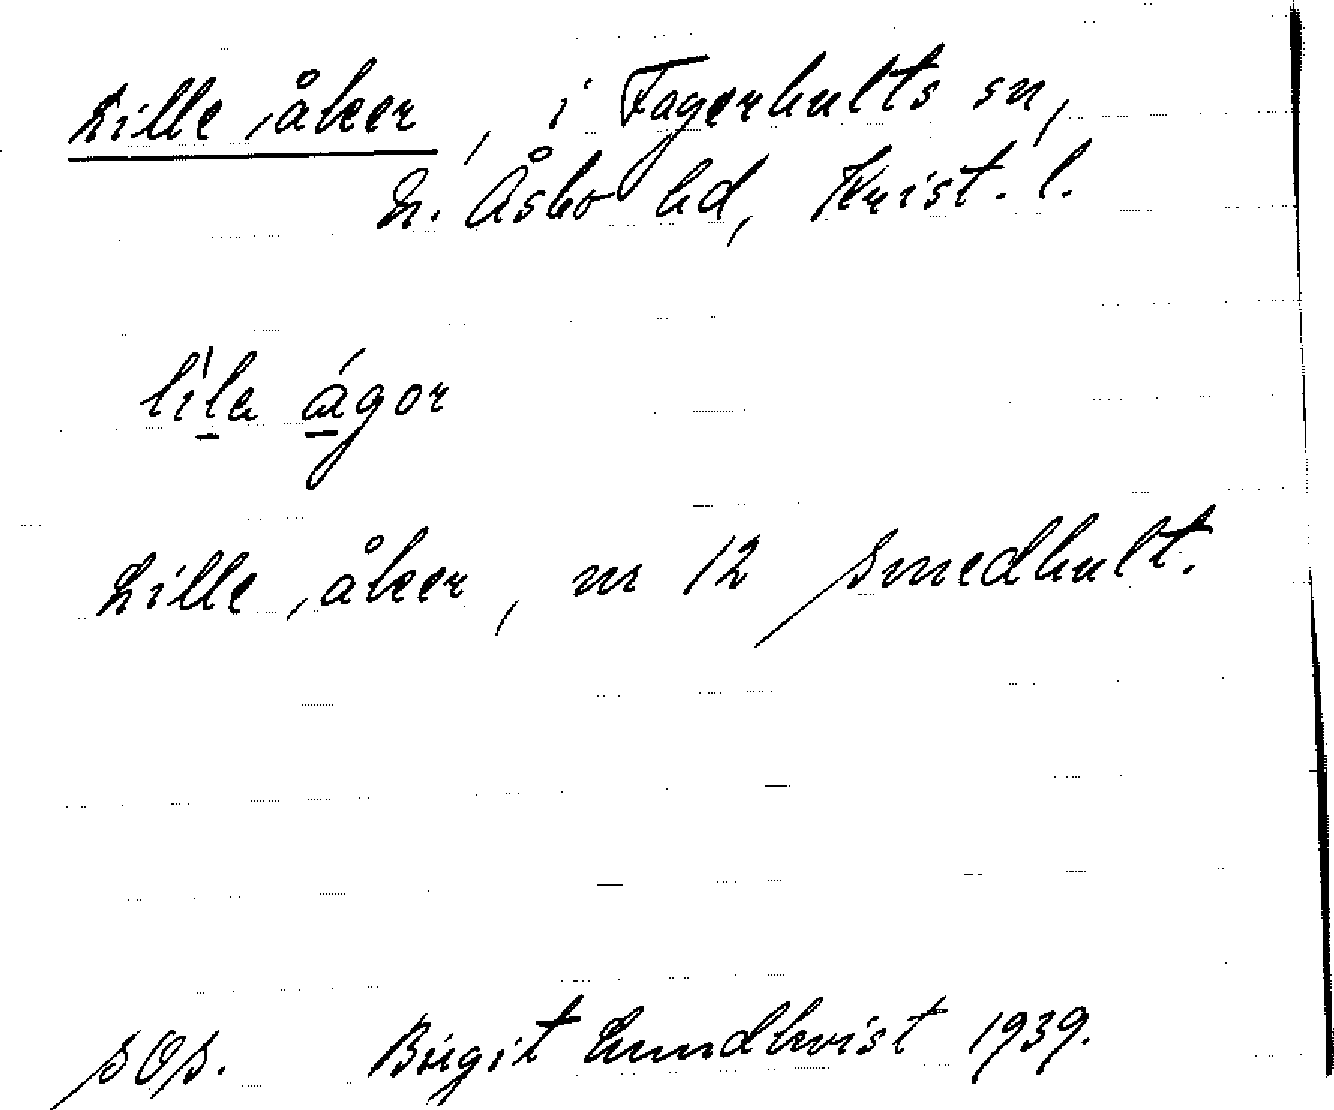 Lille ,åker , i Fagerhults sn,
N. Åsbo hd, Krist. l.
li̍la ágor
Lille ,åker, nr 12 Smedhult.
sOs. Birgit Lundkvist 1939.